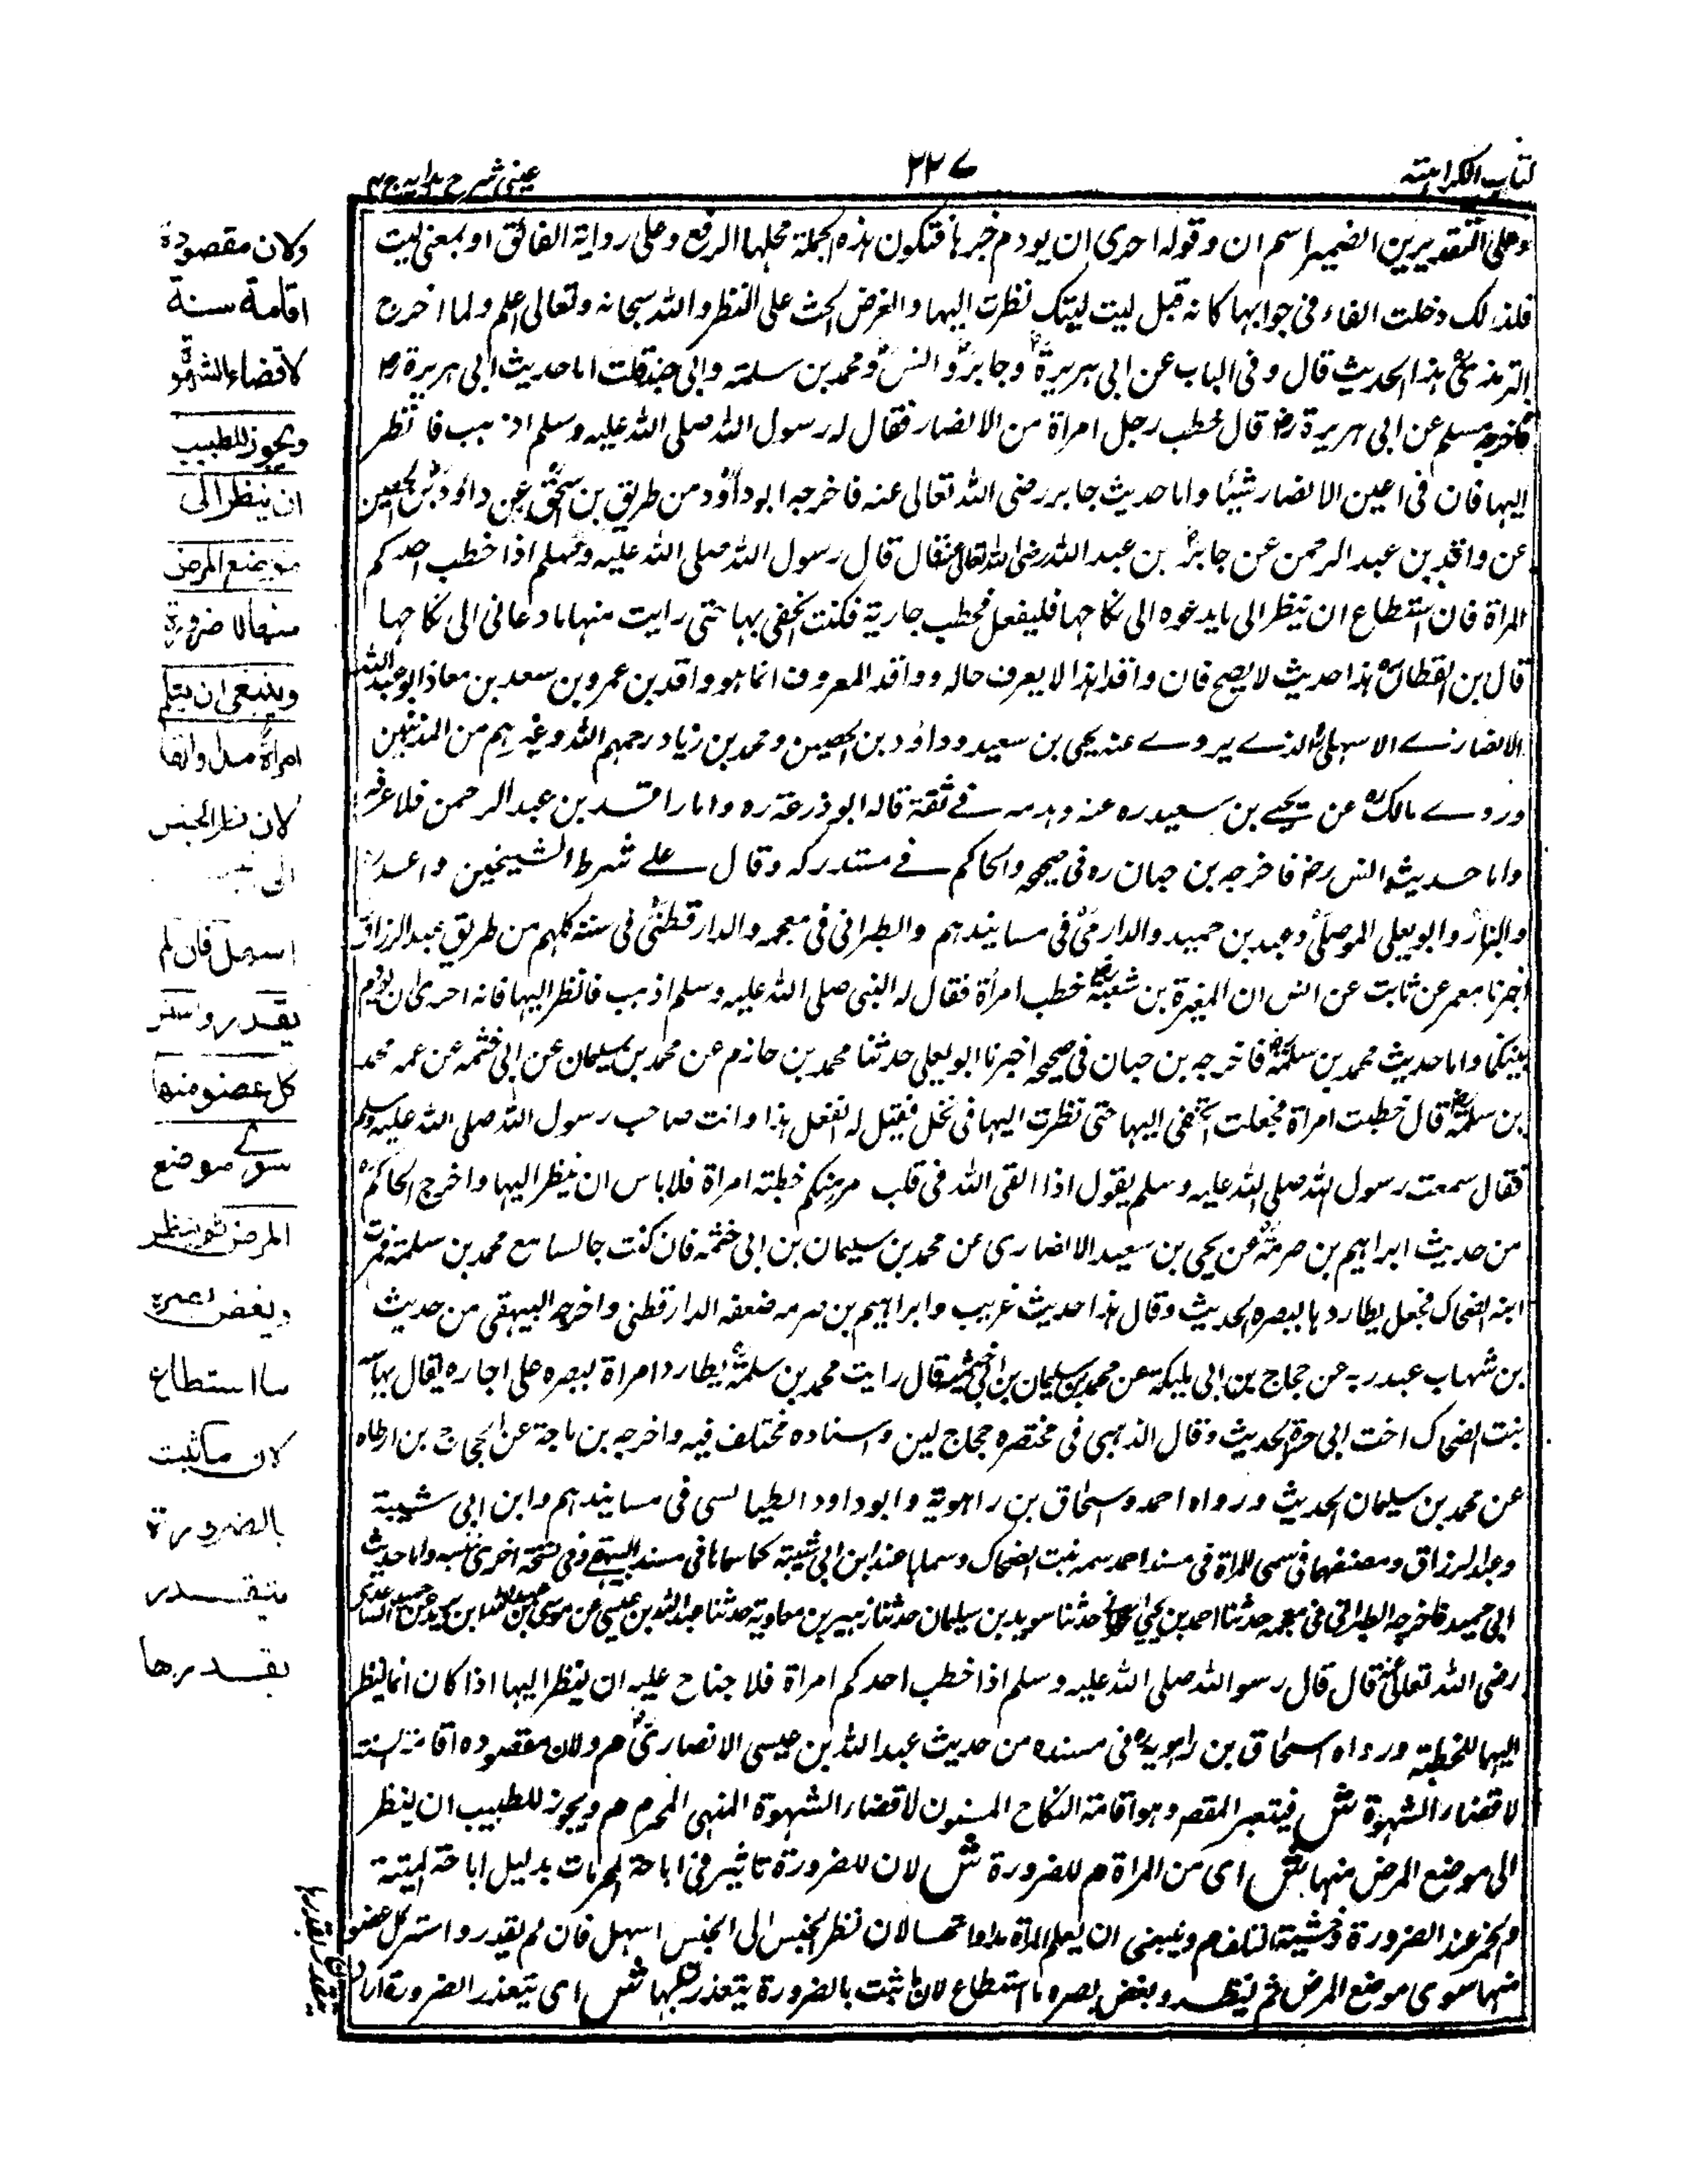 كتاب الكراهية
٢٢٧
عيني شرح هداية ج ٤
وعلى التقديرين الضمير اسم ان وقوله احرى ان يودم خبرها فتكون هذه الجملة محلها الرفع وعلى رواية الفائق او بمعنى ليت
فلذلك دخلت الفاء في جوابها كانه قيل ليت ليتك نظرت اليها والغرض الحث على النظر والله سبحانه وتعالى اعلم ولما اخرج
الترمذي هذا الحديث قال وفي الباب عن ابي هريرة وجابر وانس ومحمد بن سلمة وابي حميد قلت اما حديث ابي هريرة رض
فاخرجه مسلم عن ابي هريرة رض قال خطب رجل امراة من الانصار فقال له رسول الله صلى الله عليه وسلم اذهب فانظر
اليها فان في اعين الانصار شيئا واما حديث جابر رضى الله تعالى عنه فاخرجه ابو داؤد من طريق بن سحق عن داؤد بن الحصين
عن واقد بن عبد الرحمن عن جابر بن عبد الله رضى الله تعالى عنه قال قال رسول الله صلى الله عليه وسلم اذا خطب احدكم
المراة فان استطاع ان ينظر الى ما يدعوه الى نكاحها فليفعل فخطب جارية فكنت اتخفى بها حتى رايت منها ما دعانى الى نكاحها
قال بن القطان هذا حديث لا يصح فان واقدا هذا لا يعرف حاله وواقد المعروف انما هو واقد بن عمرو بن سعد بن معاذ ابو عبد الله
الانصاري الاسهلى الذي يروي عنه يحيى بن سعيد وداؤد بن الحصين ومحمد بن زياد رحمهم الله وغيرهم من المدنيين
وروي مالك عن يحيى بن سعيد ره عنه وهو مدني ثقة قاله ابو ذرعة ره واما واقد بن عبد الرحمن فلا اعرفه
واما حديث انس رض فاخرجه بن حبان ره في صحيحه والحاكم في مستدركه وقال على شرط الشيخين واحمد
والبزار وابو يعلى الموصلي وعبد بن حميد والدارمي في مسانيدهم والطبراني في معجمه والدارقطني في سننه كلهم من طريق عبد الرزاق
اخبرنا معمر عن ثابت عن انس ان المغيرة بن شعبة خطب امرأة فقال له النبي صلى الله عليه وسلم اذهب فانظر اليها فانه احرى ان يودم
بينكما واما حديث محمد بن سلمة فاخرجه بن حبان في صحيحه اخبرنا ابو يعلى حدثنا محمد بن حازم عن محمد بن سليمان عن ابي خثمه عن عمه محمد
بن سلمة قال خطبت امراة فجعلت اتخفى اليها حتى نظرت اليها في نخل فقيل له اتفعل هذا وانت صاحب رسول الله صلى الله عليه وسلم
فقال سمعت رسول الله صلى الله عليه وسلم يقول اذا القى الله في قلب مر منكم خطبة امراة فلا باس ان ينظر اليها واخرج الحاكم
من حديث ابراهيم بن صرمة عن يحيى بن سعيد الانصارى عن محمد بن سليمان بن ابى خثمه فان كنت جالسا مع محمد بن سلمة فمرت
ابنه الضحاك فجعل يطاردها ببصره الحديث وقال هذا حديث غريب وابراهيم بن صرمه ضعفه الدارقطنى واخرجه البيهقى من حديث
بن شهاب عبد ربه عن حجاج بن ابى مليكة عن محمد بن سليمان بن ابى خيثمة قال رايت محمد بن سلمة يطارد امراة ببصره على اجاره يقال لها
بنت الضحاك اخت ابى الحديث وقال الذهبى فى مختصره حجاج لين واسناده مختلف فيه واخرجه بن ماجة عن الحجاج بن ارطاه
عن محمد بن سليمان الحديث ورواه احمد وسحاق بن راهوية وابو داود الطيالسى فى مسانيدهم وابن ابى شيبة
وعبد الرزاق ومصنفهما فى سمى المراة فى مسند احمد بنت الضحاك وسماها عند ابن ابى شيبة كما سماها فى مسند البيهقى وفى نسخة اخرى واما حديث
ابى حميد فاخرجه الطبرانى فى معجمه حدثنا احمد بن يحيى حدثنا سويد بن سليمان حدثنا زهير بن معاوية حدثنا عبد الله بن عيسى عن موسى بن عبد الله ابن يزيد عن ابى حميد الساعدى
رضى الله تعالى عنه قال قال رسو الله صلى الله عليه وسلم اذا خطب احدكم امراة فلا جناح عليه ان ينظر اليها اذا كان انما ينظر
اليها للخطبة ورواه اسحاق بن راهويه فى مسنده من حديث عبد الله بن عيسى الانصارى م ولان مقصوده اقامة السنة
لا قضاء الشهوة ش فيتعبر المقصود هو اقامة النكاح المسنون لا قضاء الشهوة المنهى المحرم م ويجوز للطبيب ان ينظر
الى موضع المرض منها ش اى من المراة م للضرورة ش لان للضرورة تاثير فى اباحة المحرمات بدليل اباحة الميتة
والخمر عند الضرورة وخشية التلف م وينبغى ان يعلم امراة مداواتها لان نظر الجنس الى الجنس اسهل فان لم يقدر واستر كل عضو
منها سوى موضع المرض ثم ينظر ويغض بصره ما استطاع لان ما ثبت بالضرورة يتعذر بقدرها ش اى يتعذر الضرورة
ولان مقصودة
اقامة سنة
لا قضاء الشهوة
ويجوز للطبيب
ان ينظر الى
موضع المرض
منها لا ضرورة
وينبغى ان يعلم
امراة مداواتها
لان نظر الجنس
الى
اسهل فان لم
يقدر واستر
كل عضو منها
سوى موضع
المرض ثم ينظر
ويغض بصره
ما استطاع
لان ما ثبت
بالضرورة
يتقدر
بقدرها